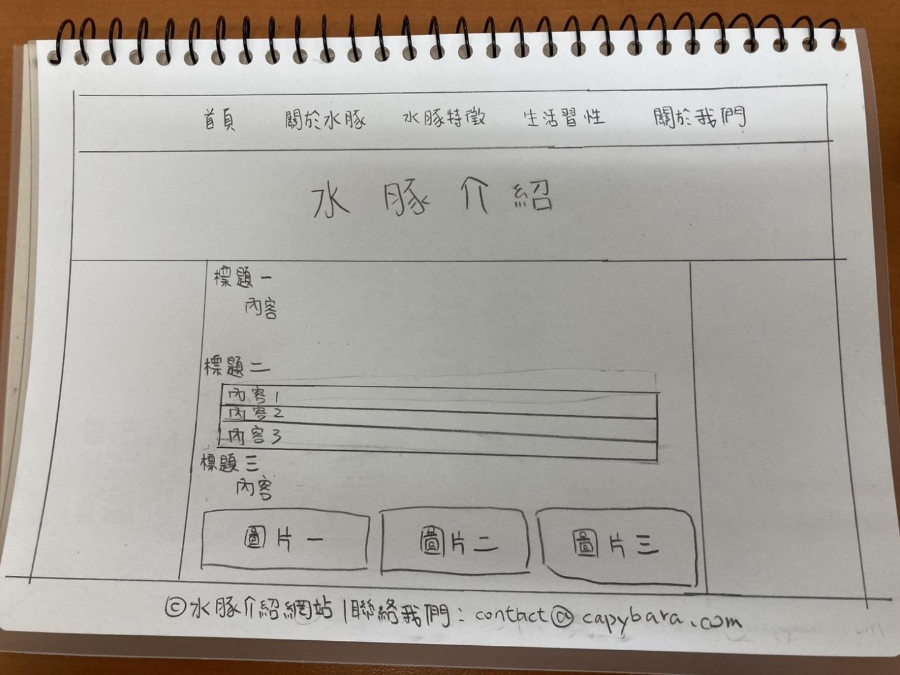 首頁 關於水豚 水豚特徵 生活習性 關於我們
水豚介紹
標題一
內容
標題二
內容1
內容2
內容3
標題三
內容
圖片一 圖片二 圖片三
©水豚介紹網站 | 聯絡我們: contact@capybara.com